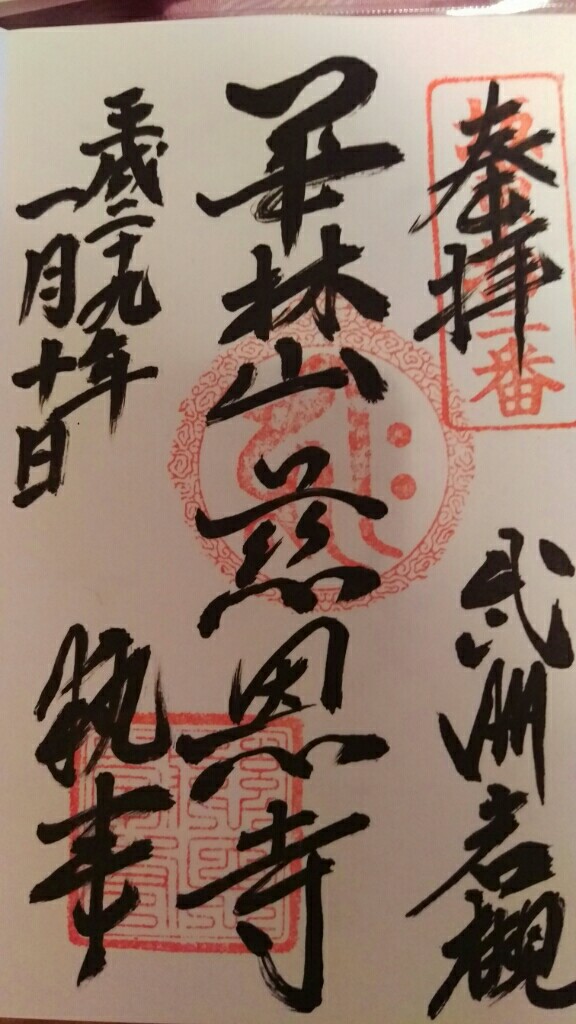 奉拝
武州岩槻
華林山慈恩寺
平成二十九年
一月十日
執事